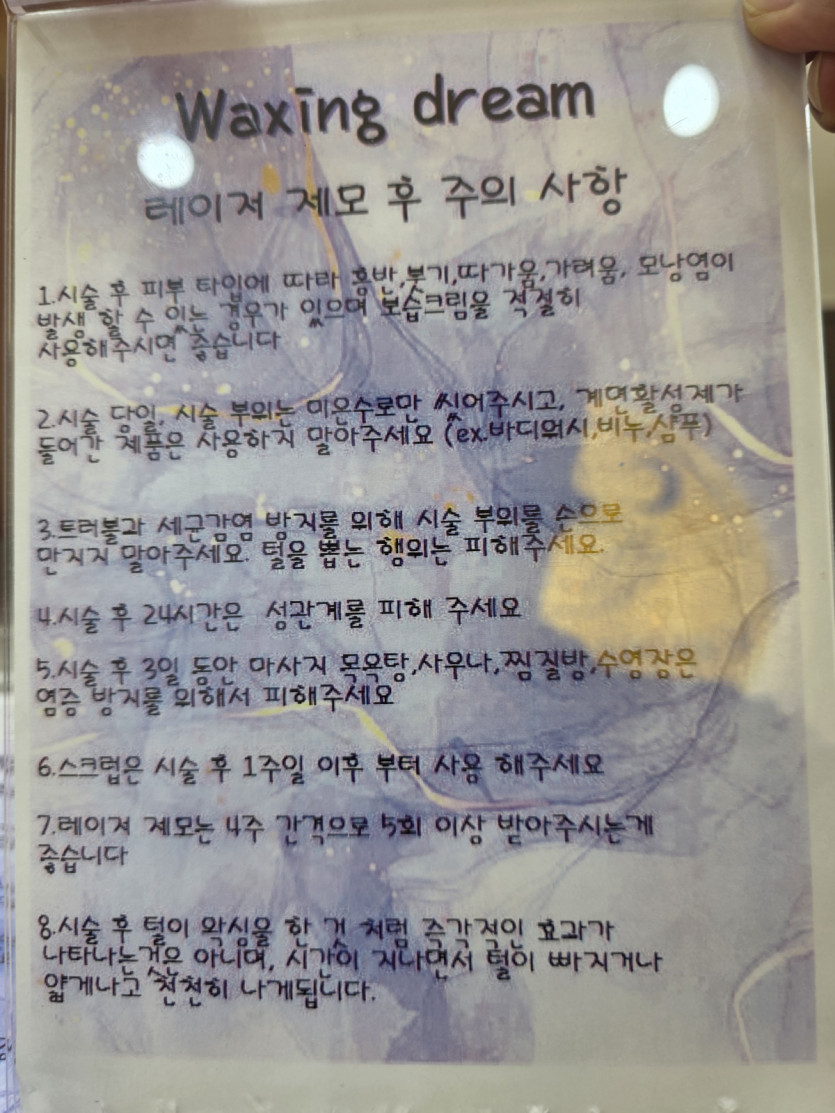 Waxing dream
레이저 제모 후 주의 사항
1.시술 후 피부 타입에 따라 홍반,붓기,따가움,가려움, 모낭염이
발생 할 수 있는 경우가 있으며 보습크림을 적절히
사용해주시면 좋습니다
2.시술 당일, 시술 부위는 미온수로만 씻어주시고, 계면활성제가
들어간 제품은 사용하지 말아주세요 (ex.바디워시,비누,샴푸)
3.트러블과 세균감염 방지를 위해 시술 부위를 손으로
만지지 말아주세요. 털을 뽑는 행위는 피해주세요.
4.시술 후 24시간은 성관계를 피해 주세요
5.시술 후 3일 동안 마사지 목욕탕,사우나,찜질방,수영장은
염증 방지를 위해서 피해주세요
6.스크럽은 시술 후 1주일 이후 부터 사용 해주세요
7.레이저 제모는 4주 간격으로 5회 이상 받아주시는게
좋습니다
8.시술 후 털이 왁싱을 한 것 처럼 즉각적인 효과가
나타나는것은 아니며, 시간이 지나면서 털이 빠지거나
얇게나고 천천히 나게됩니다.